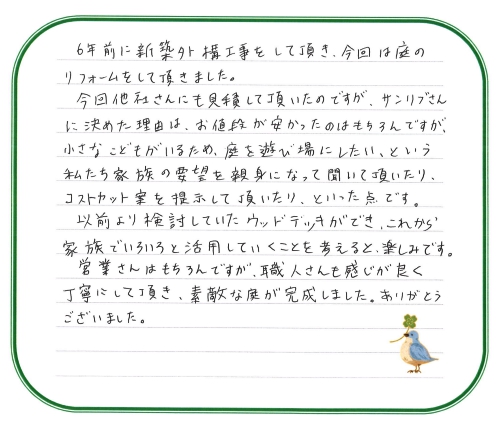 6年前に新築外構工事をして頂き、今回は庭の
リフォームをして頂きました。
今回他社さんにも見積して頂いたのですが、サンリブさん
に決めた理由は、お値段が安かったのはもちろんですが、
小さなこどもがいるため、庭を遊び場にしたい、という
私たち家族の要望を親身になって聞いて頂いたり、
コストカット案を提示して頂いたり、といった点です。
以前より検討していたウッドデッキができ、これから
家族でいろいろと活用していくことを考えると、楽しみです。
営業さんはもちろんですが、職人さんも感じが良く
丁寧にして頂き、素敵な庭が完成しました。ありがとう
ございました。